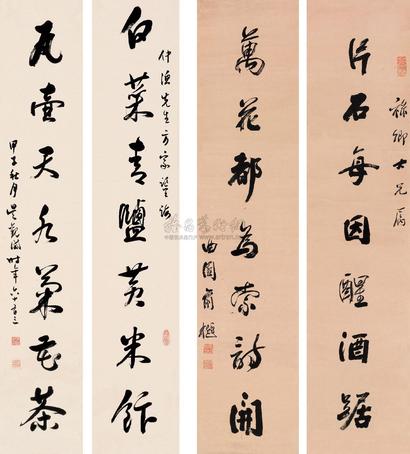 卿大兄属
片石每因醒酒踞
萬花都為索詩開
曲園俞樾
仲漁先生方家
白菜青鹽黃米飰
瓦壺天水菊花茶
甲子秋月 時年六十有三